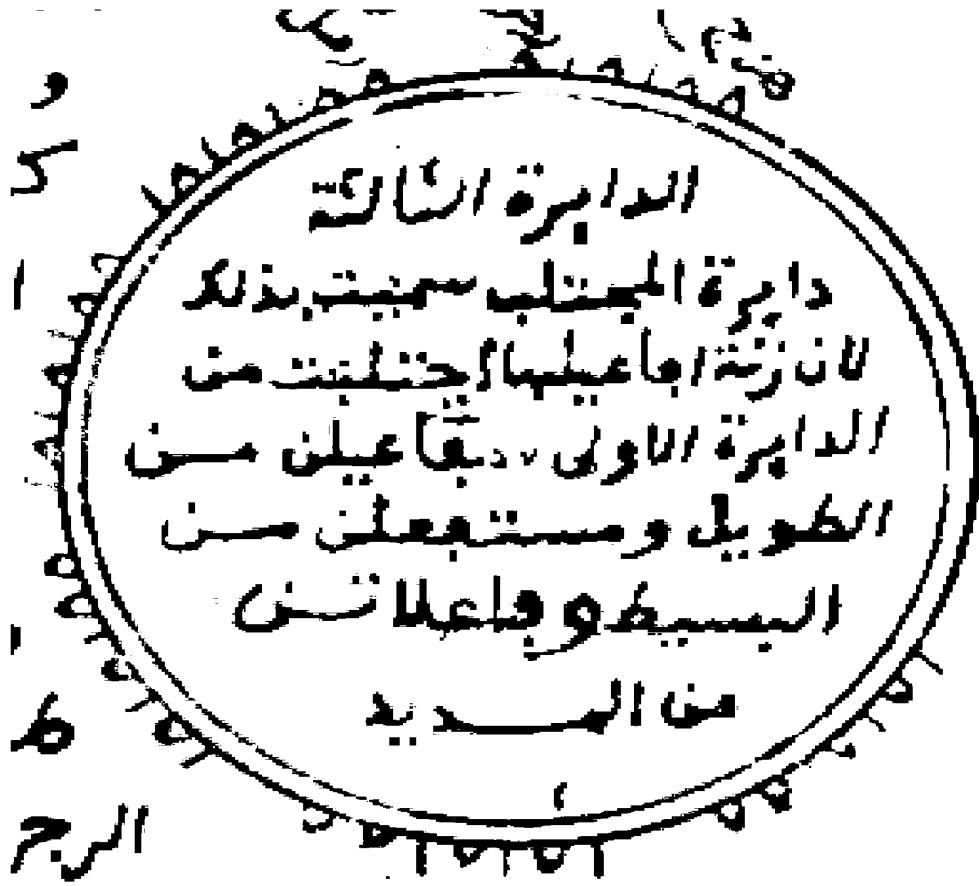 الدايرة الثالثة
دايرة المجتلب سميت بذلك
لان زنة افاعيلها اجتلبت من
الدايرة الاولى مفاعيلن من
الطويل ومستفعلن من
البسيط وفاعلاتن
من المديد
الرجز